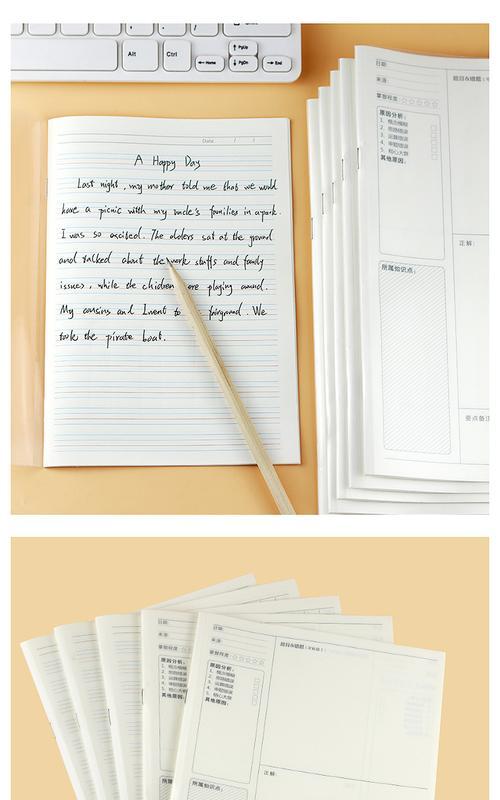 Alt
Ctrl
PgUp
Home
PgDn
End
Date / /
A Happy Day
Last night, my mother told me that we would
have a picnic with my uncle's families in a park.
I was so excited. The olders sat at the ground
and talked about the work stuffs and family
issues, while the children were playing around.
My cousins and I went to fairground. We
took the pirate boat.
日期:
来源:
掌握程度: ☆☆☆☆☆
原因分析:
1、概念模糊
2、思路错误
3、运算错误
4、审题错误
5、粗心大意
其他原因:
所属知识点:
题目&错题:
正解:
要点备注
日期:
来源:
掌握程度: ☆☆☆☆☆
原因分析:
1、概念模糊
2、思路错误
3、运算错误
4、审题错误
5、粗心大意
其他原因:
所属知识点:
题目&错题:
正解: